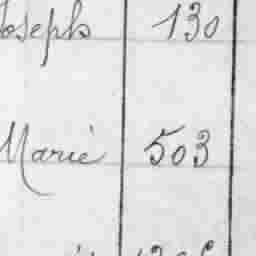 Joseph 130
Marie 503